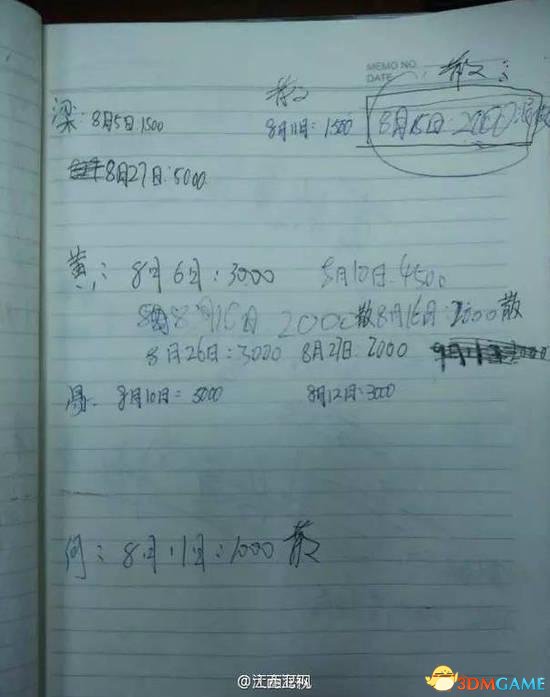 MEMO NO.
DATE
散:
散
梁: 8月5日:1500 8月11日:1500 8月15日:2000
8月27日:5000
黄: 8月6日:3000 8月10日:4500
8月15日 2000散 8月16日:2000散
8月26日:3000 8月27日:2000
8月10日:5000 8月12日:3000
何: 8月11日:1000 散
@江西卫视
3DMGAME